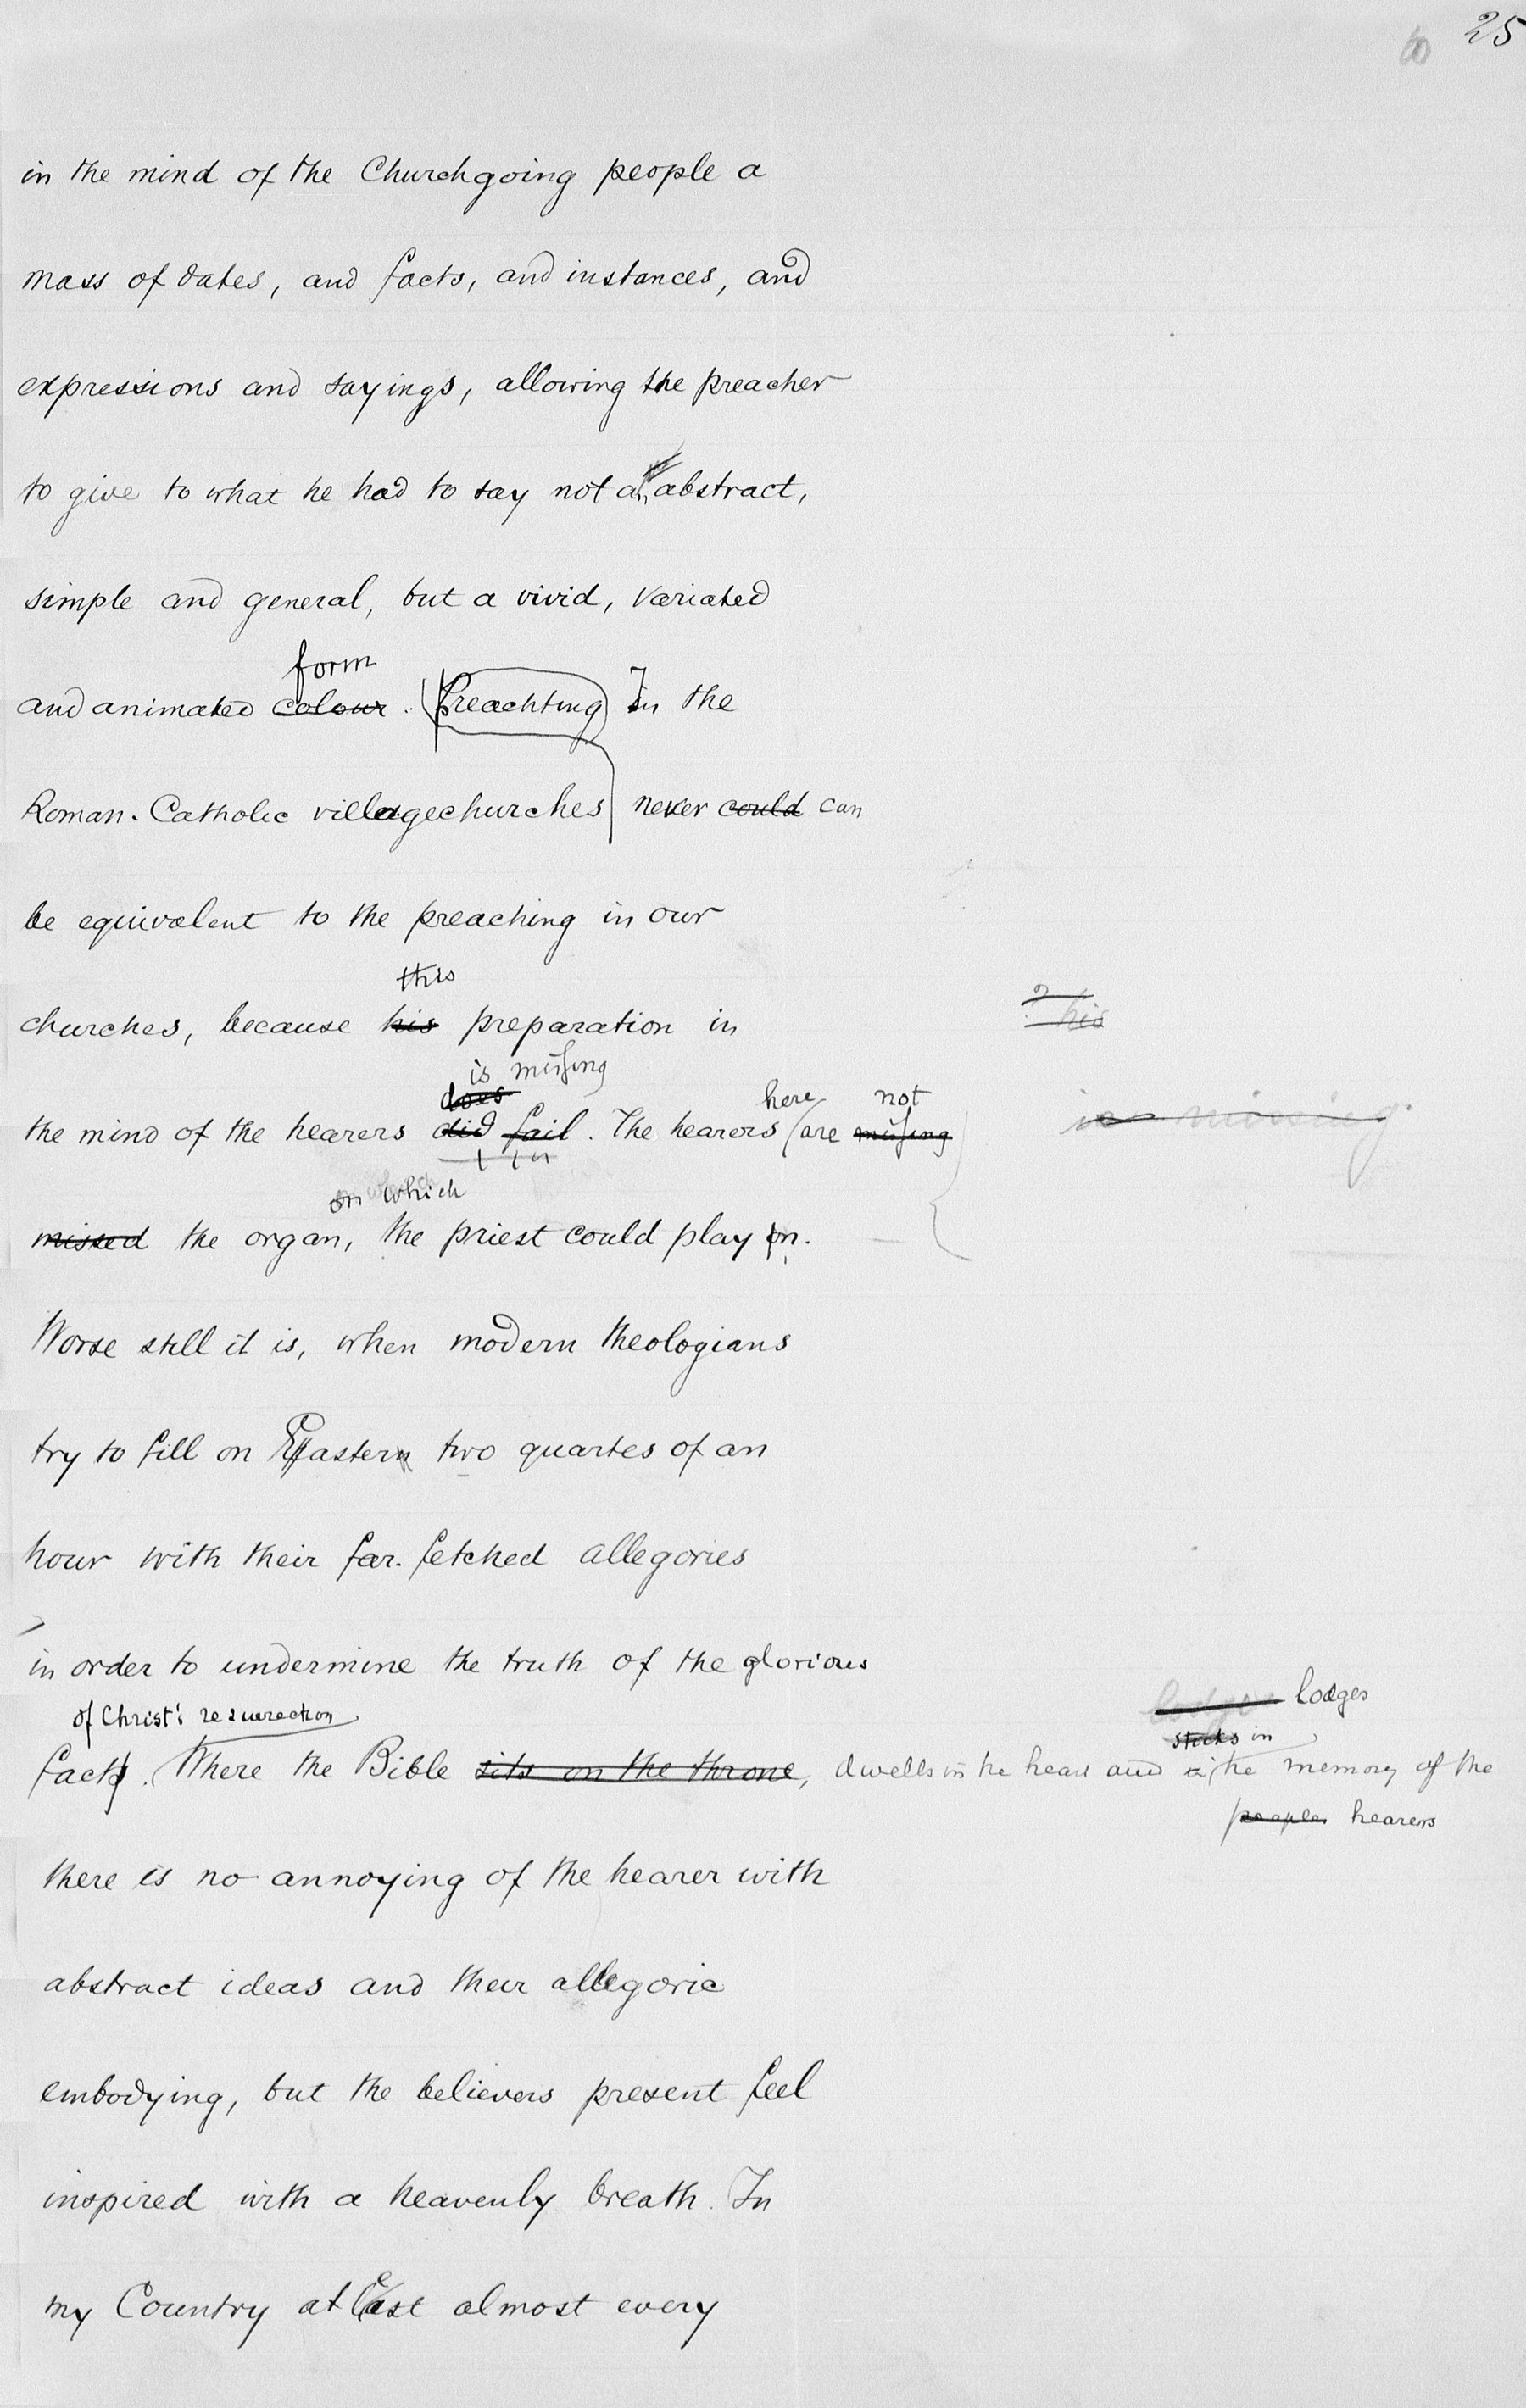 25
in the mind of the Churchgoing people a
mass of dates, and facts, and instances, and
expressions and sayings, allowing the preacher
to give to what he had to say not an abstract,
simple and general, but a vivid, variated
form
and animated colour. (Preaching) In the
Roman-Catholic villagechurches never could can
be equivalent to the preaching in our
this
churches, because his preparation in
his
is missing
does here not
the mind of the hearers did fail. The hearers are missing
is missing
on which
missed the organ, the priest could play on.
Worse still it is, when modern theologians
try to fill on Eastern two quartes of an
hour with their far-fetched allegories
in order to undermine the truth of the glorious
lodges lodges
of Christ's resurrection
sticks in
facts. Where the Bible sits on the throne, dwells in the heart and in the memory of the
people hearers
there is no annoying of the hearer with
abstract ideas and their allegoric
embodying, but the believers present feel
inspired with a heavenly breath. In
my Country at least almost every